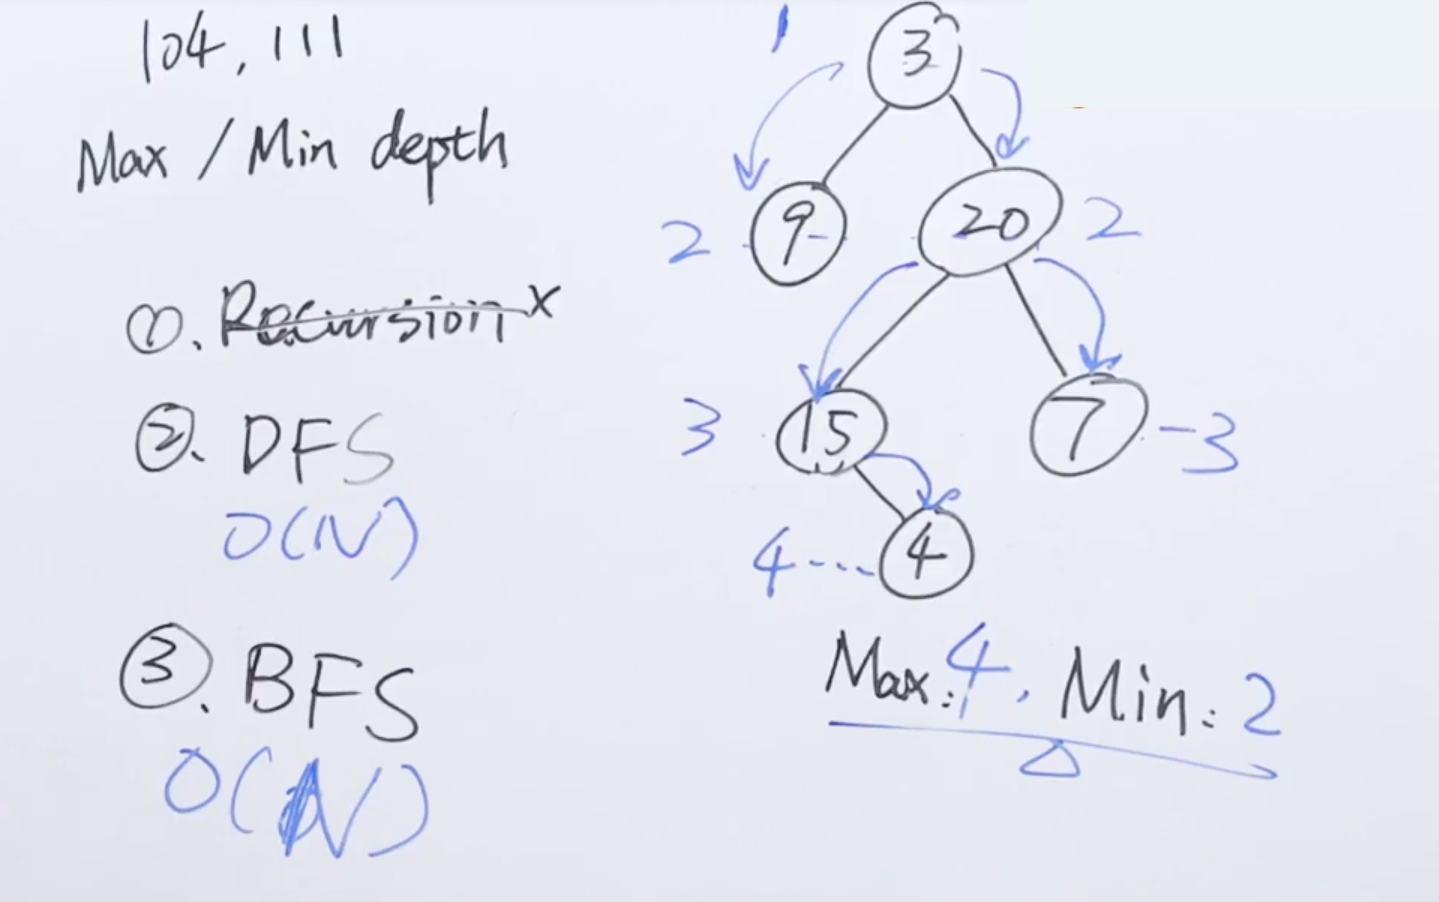 104, 111
Max / Min depth
①. Recursion x
②. DFS
O(N)
③. BFS
O(N)
1
3
2
9
20
2
3
15
7
3
4
4
Max: 4, Min: 2